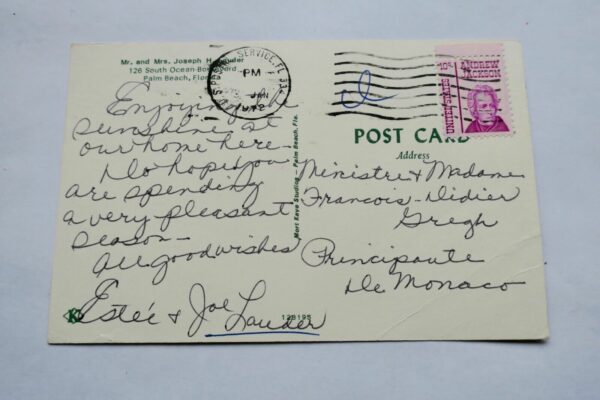 Mr. and Mrs. Joseph H. Lauder
126 South Ocean Boulevard
Palm Beach, Florida
Enjoying the
sunshine at
our home here-
Do hope you
are spending
a very pleasant
season-
All good wishes
Estée & Joe Lauder
Mort Kaye Studios - Palm Beach, Fla.
SERVICE, FL
PM
JAN
1972
10c
ANDREW
JACKSON
UNITED STATES
POST CARD
Address
Ministre & Madame
Francois-Didier
Gregh
Principaute
De Monaco
K
128195